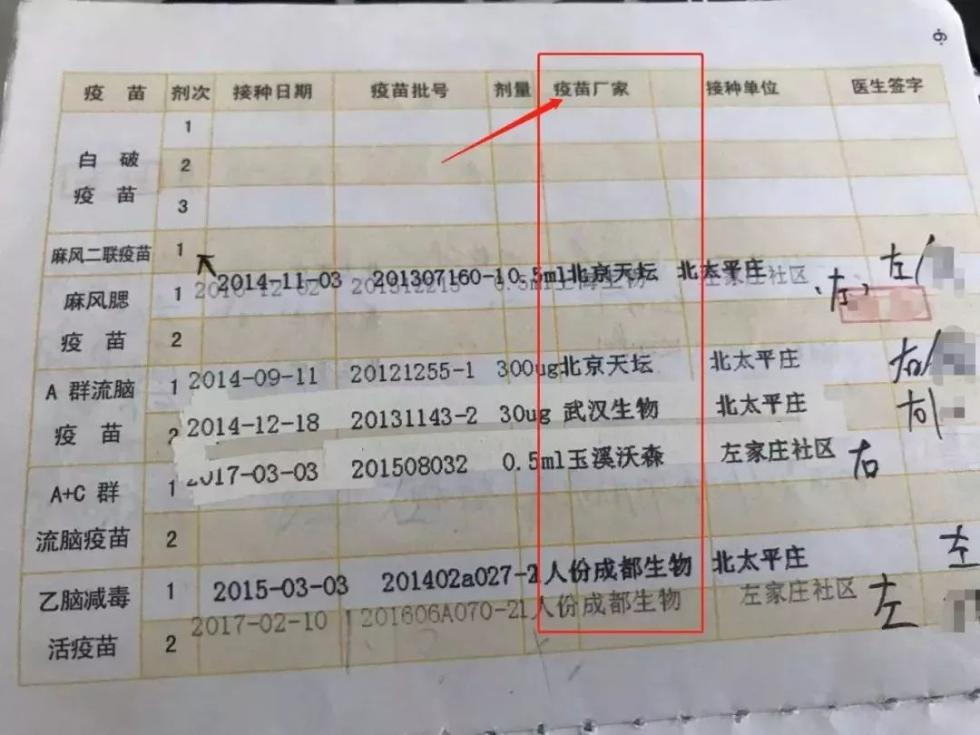 疫苗 剂次 接种日期 疫苗批号 剂量 疫苗厂家 接种单位 医生签字
白破疫苗 1
2
3
麻风二联疫苗 1 2014-11-03 201307160-1 0.5ml 北京天坛 北太平庄 左
麻风腮疫苗 1 左家庄社区 左
2
A 群流脑疫苗 1 2014-09-11 20121255-1 300ug 北京天坛 北太平庄 右
2 2014-12-18 20131143-2 30ug 武汉生物 北太平庄 右
A+C 群流脑疫苗 1 2017-03-03 201508032 0.5ml 玉溪沃森 左家庄社区 右
2
乙脑减毒活疫苗 1 2015-03-03 201402a027-2 1人份 成都生物 北太平庄 左
2 2017-02-10 201606A070-2 1人份 成都生物 左家庄社区 左